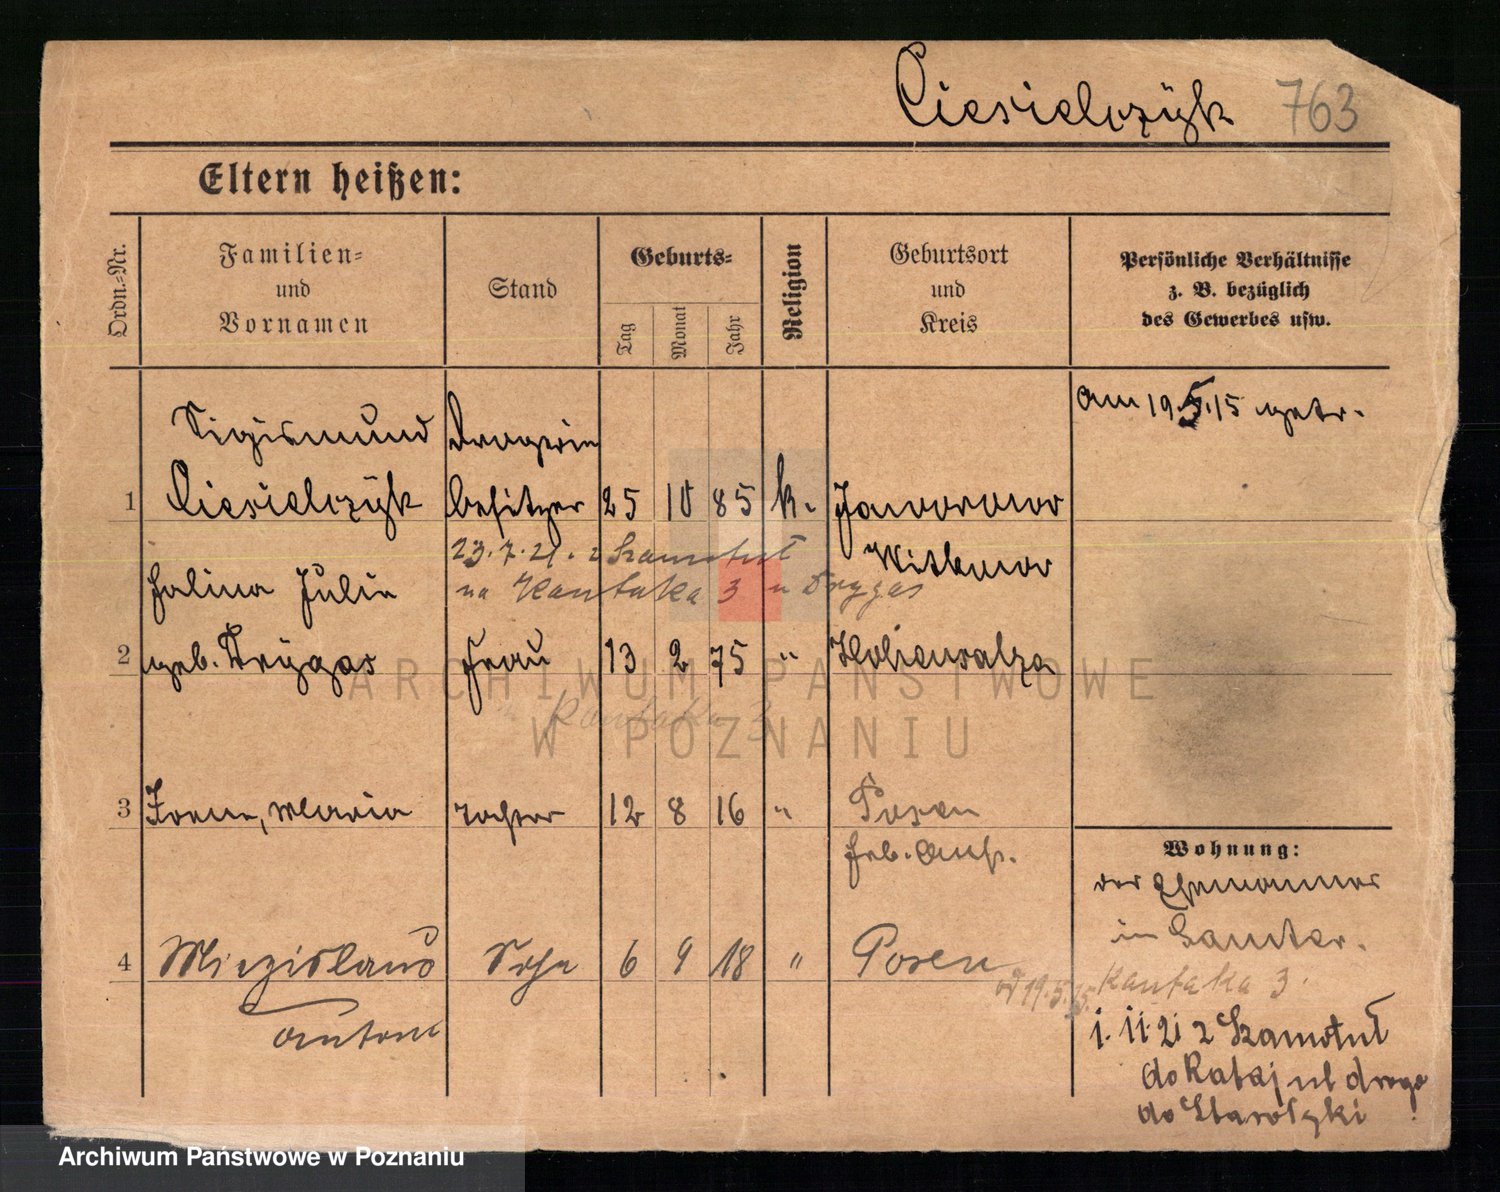 Ciesielczÿk 763
Eltern heißen:
Ordn.-Nr.
Familien-
und
Vornamen
Stand
Geburts-
Tag
Monat
Jahr
Religion
Geburtsort
und
Kreis
Persönliche Verhältnisse
z. B. bezüglich
des Gewerbes usw.
Sigismund Drogerie am 19.5.15 getr.
1 Ciesielczÿk besitzer 25 10 85 k. Jaworowo
23.7.21. z Szamotuł Witkowo
Halina Julia na Kantaka 3 u Drygas
2 geb. Drÿgas Frau 13 2 75 " Hohensalza
Kantaka 3
3 Irene, Maria Tochter 12 8 16 " Posen
Wohnung:
der Ehemann
in Samter.
4 Miezislaus Sohn 6 9 18 " Posen
od 19.5.15. Kantaka 3.
Antoni
1. 11. 21 z Szamotuł
do Rataj ul droga
do Starołęki
ARCHIWUM PAŃSTWOWE
W POZNANIU
Archiwum Państwowe w Poznaniu